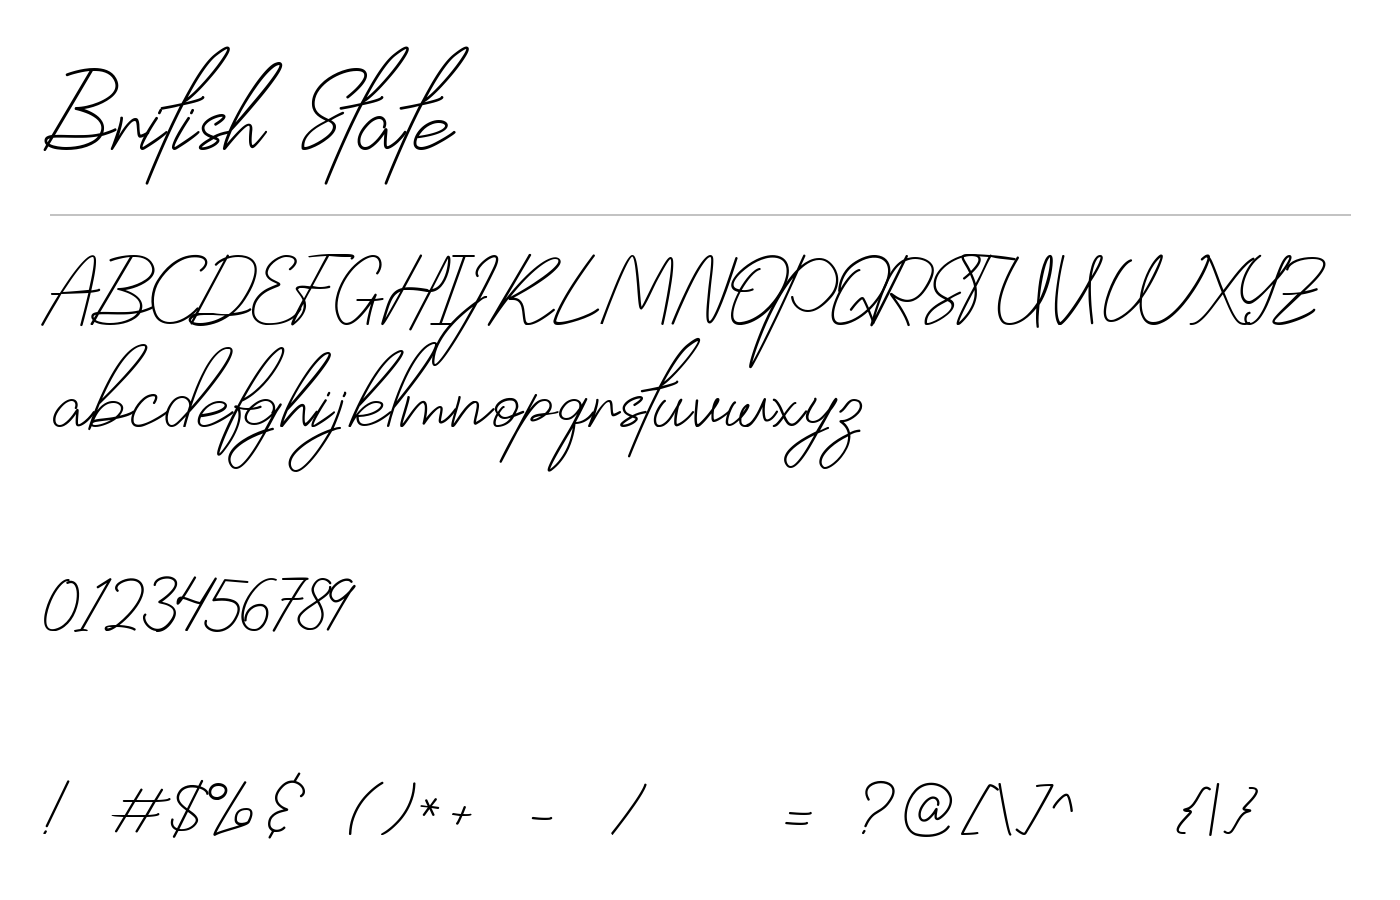 British State
ABCDEFGHIJKLMNOPQRSTUVWXYZ
abcdefghijklmnopqrstuvwxyz
0123456789
! #$%& ()*+ - / = ?@[\]^ {|}